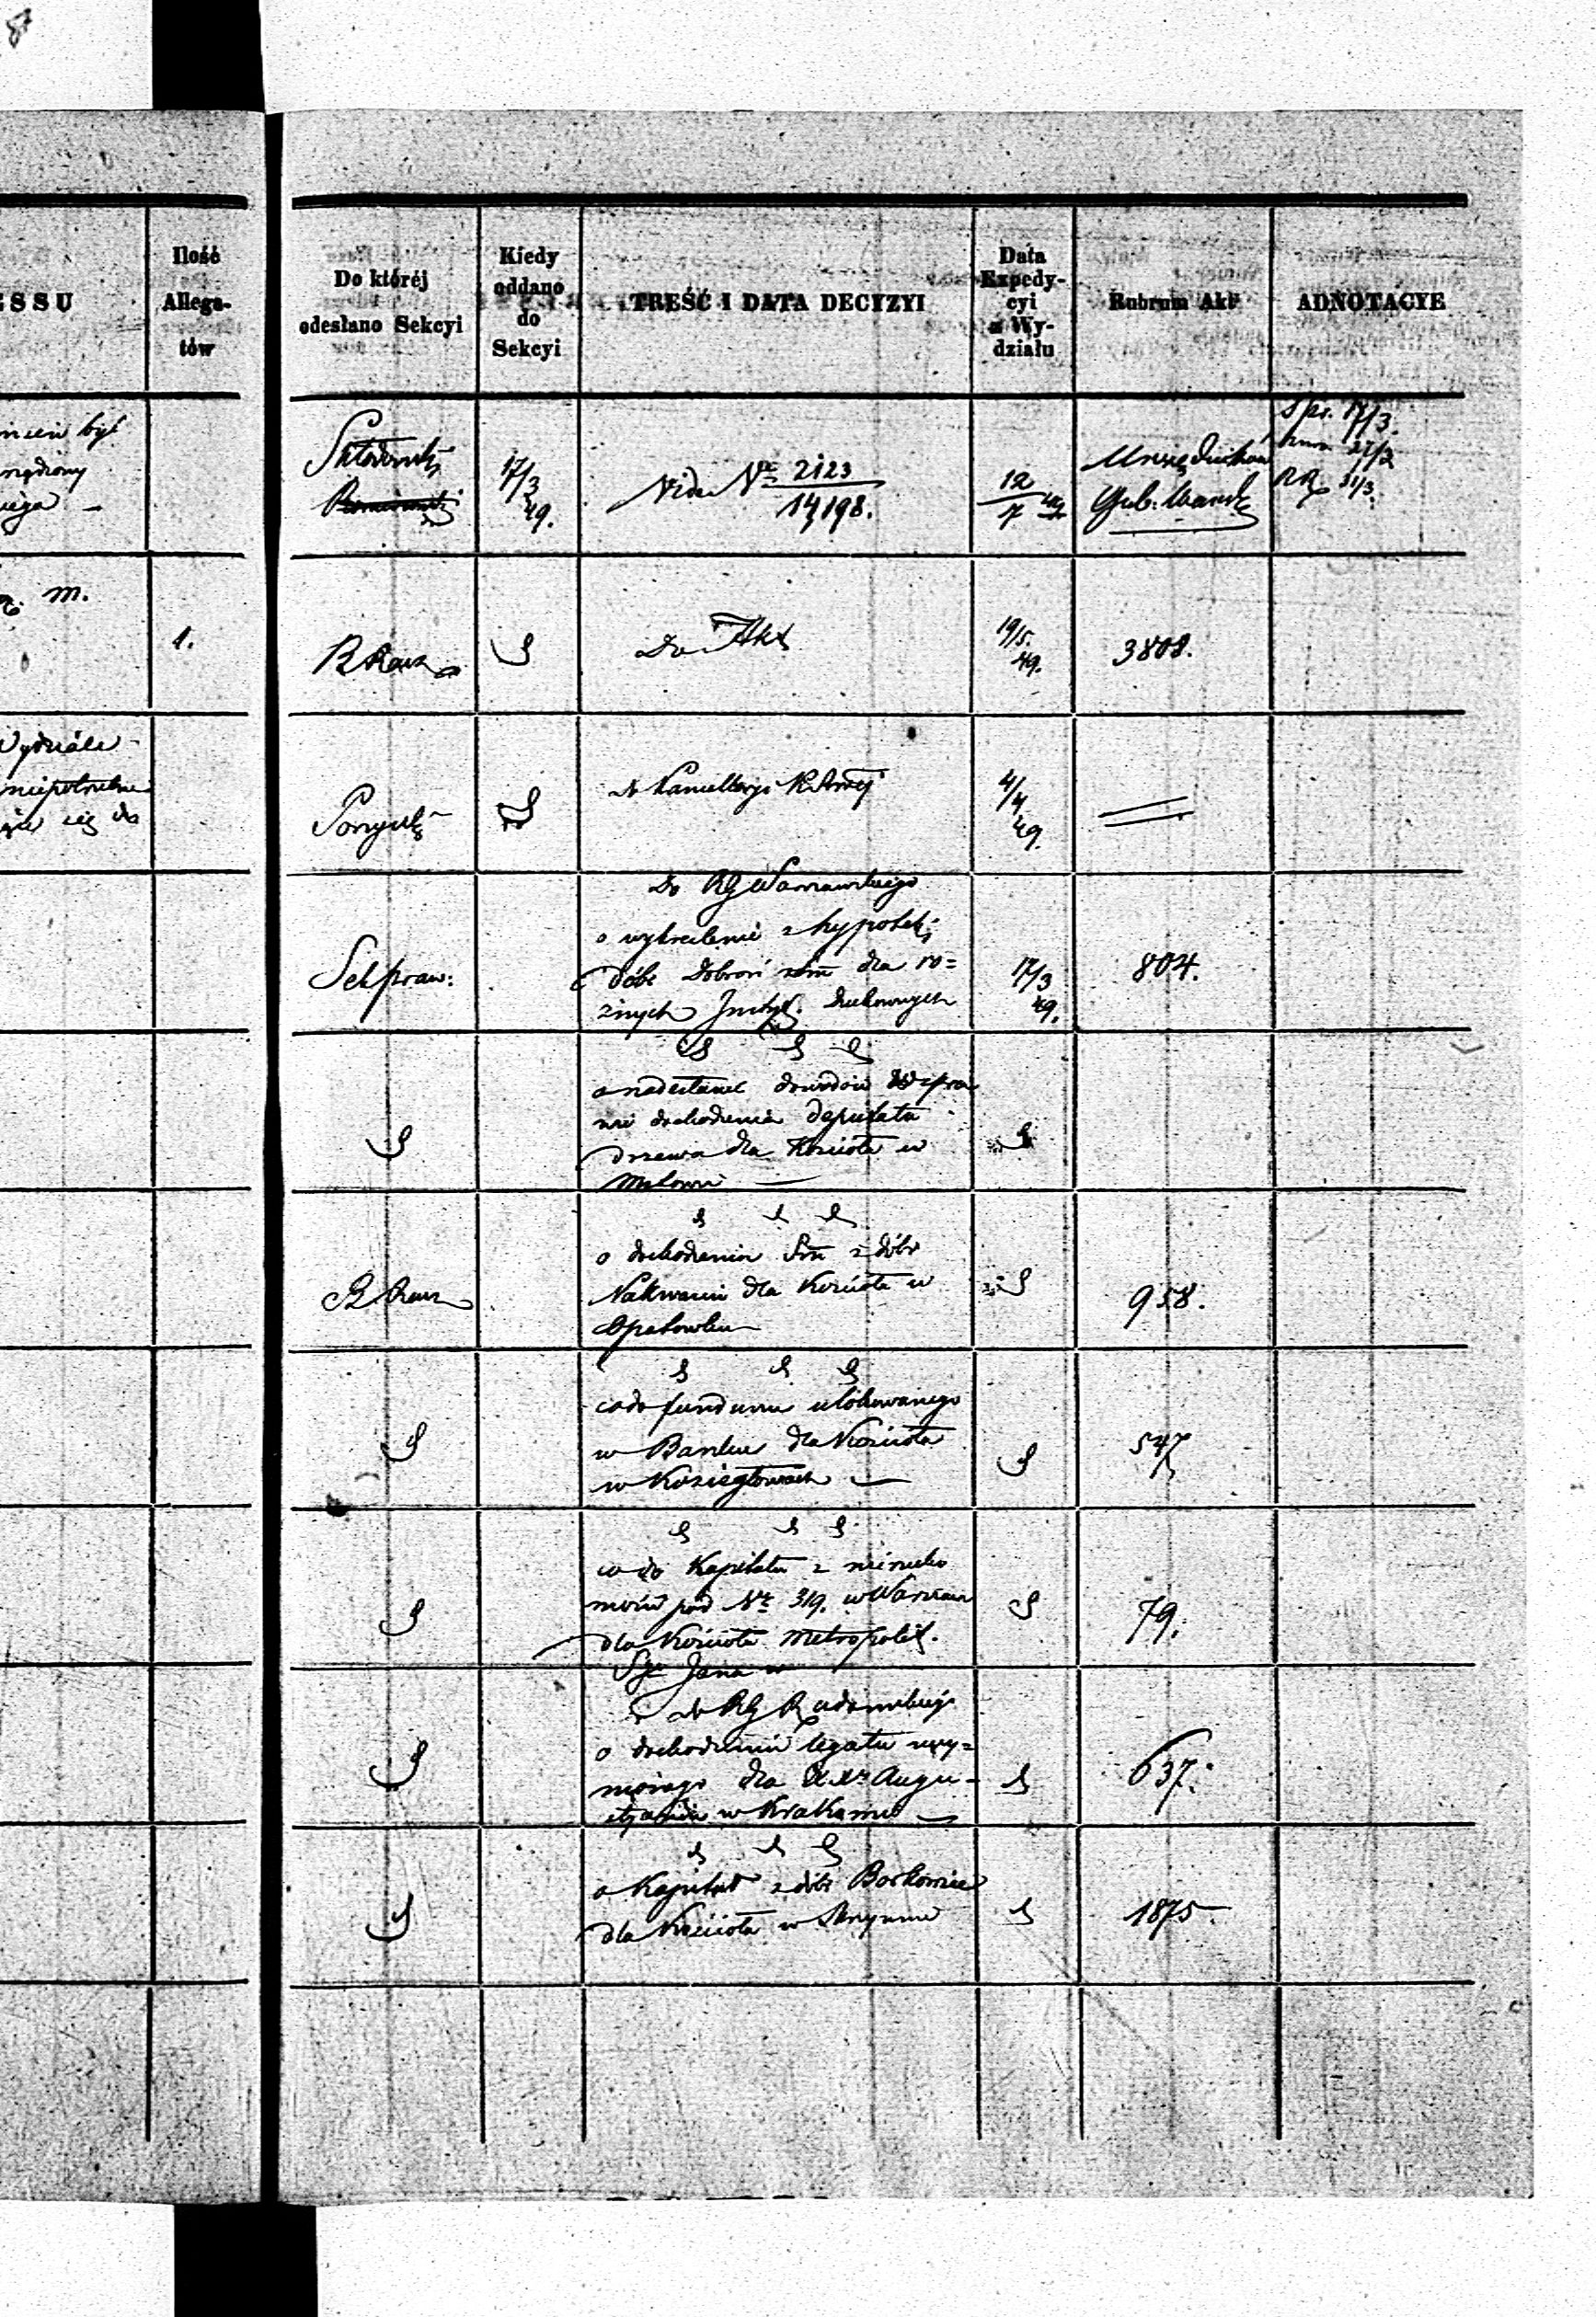 ESSU
Ilość
Allega-
tów
Do któréj
odesłano Sekcyi
Kiedy
oddano
do
Sekcyi
TREŚĆ I DATA DECYZYI
Data
Expedy-
cyi
z Wy-
działu
Rubrum Akt
ADNOTACYE
był
17/3
49.
Vide Nr 2123
14198.
12
7 49
Gub. Warsz
Spr. 17/3.
27/3
RR 31/3.
m.
1.
Do Akt
19/5.
49.
3808.
Wydziale
niepotrzebne
się do
do Kancellaryi
4/4
49.
Do RG Warszawskiego
o wykreślenie z hypoteki
Sek praw:
dóbr Dobroń sum dla ró=
żnych Instyt. duchownych
17/3
49.
804.
o nadesłanie dowodów
dochodzenia deputatu
drzewa dla Kościoła w
o dochodzenie Sm z dóbr
dla Kościoła w
Opatowku
958.
co do funduszu ulokowanego
w Banku dla Kościoła
w Koziegłowach
547
co do Kapitału z nierucho
mości pod Nr 319. w Warszaw
dla Kościoła Metropolit.
Sgo Jana w
79.
do RG Radomskiego
o dochodzenie legatu wy=
dla XX Augu-
w Krakowie
637.
o Kapitał z dóbr Borkowice
dla Kościoła w Skrzynnie
1875